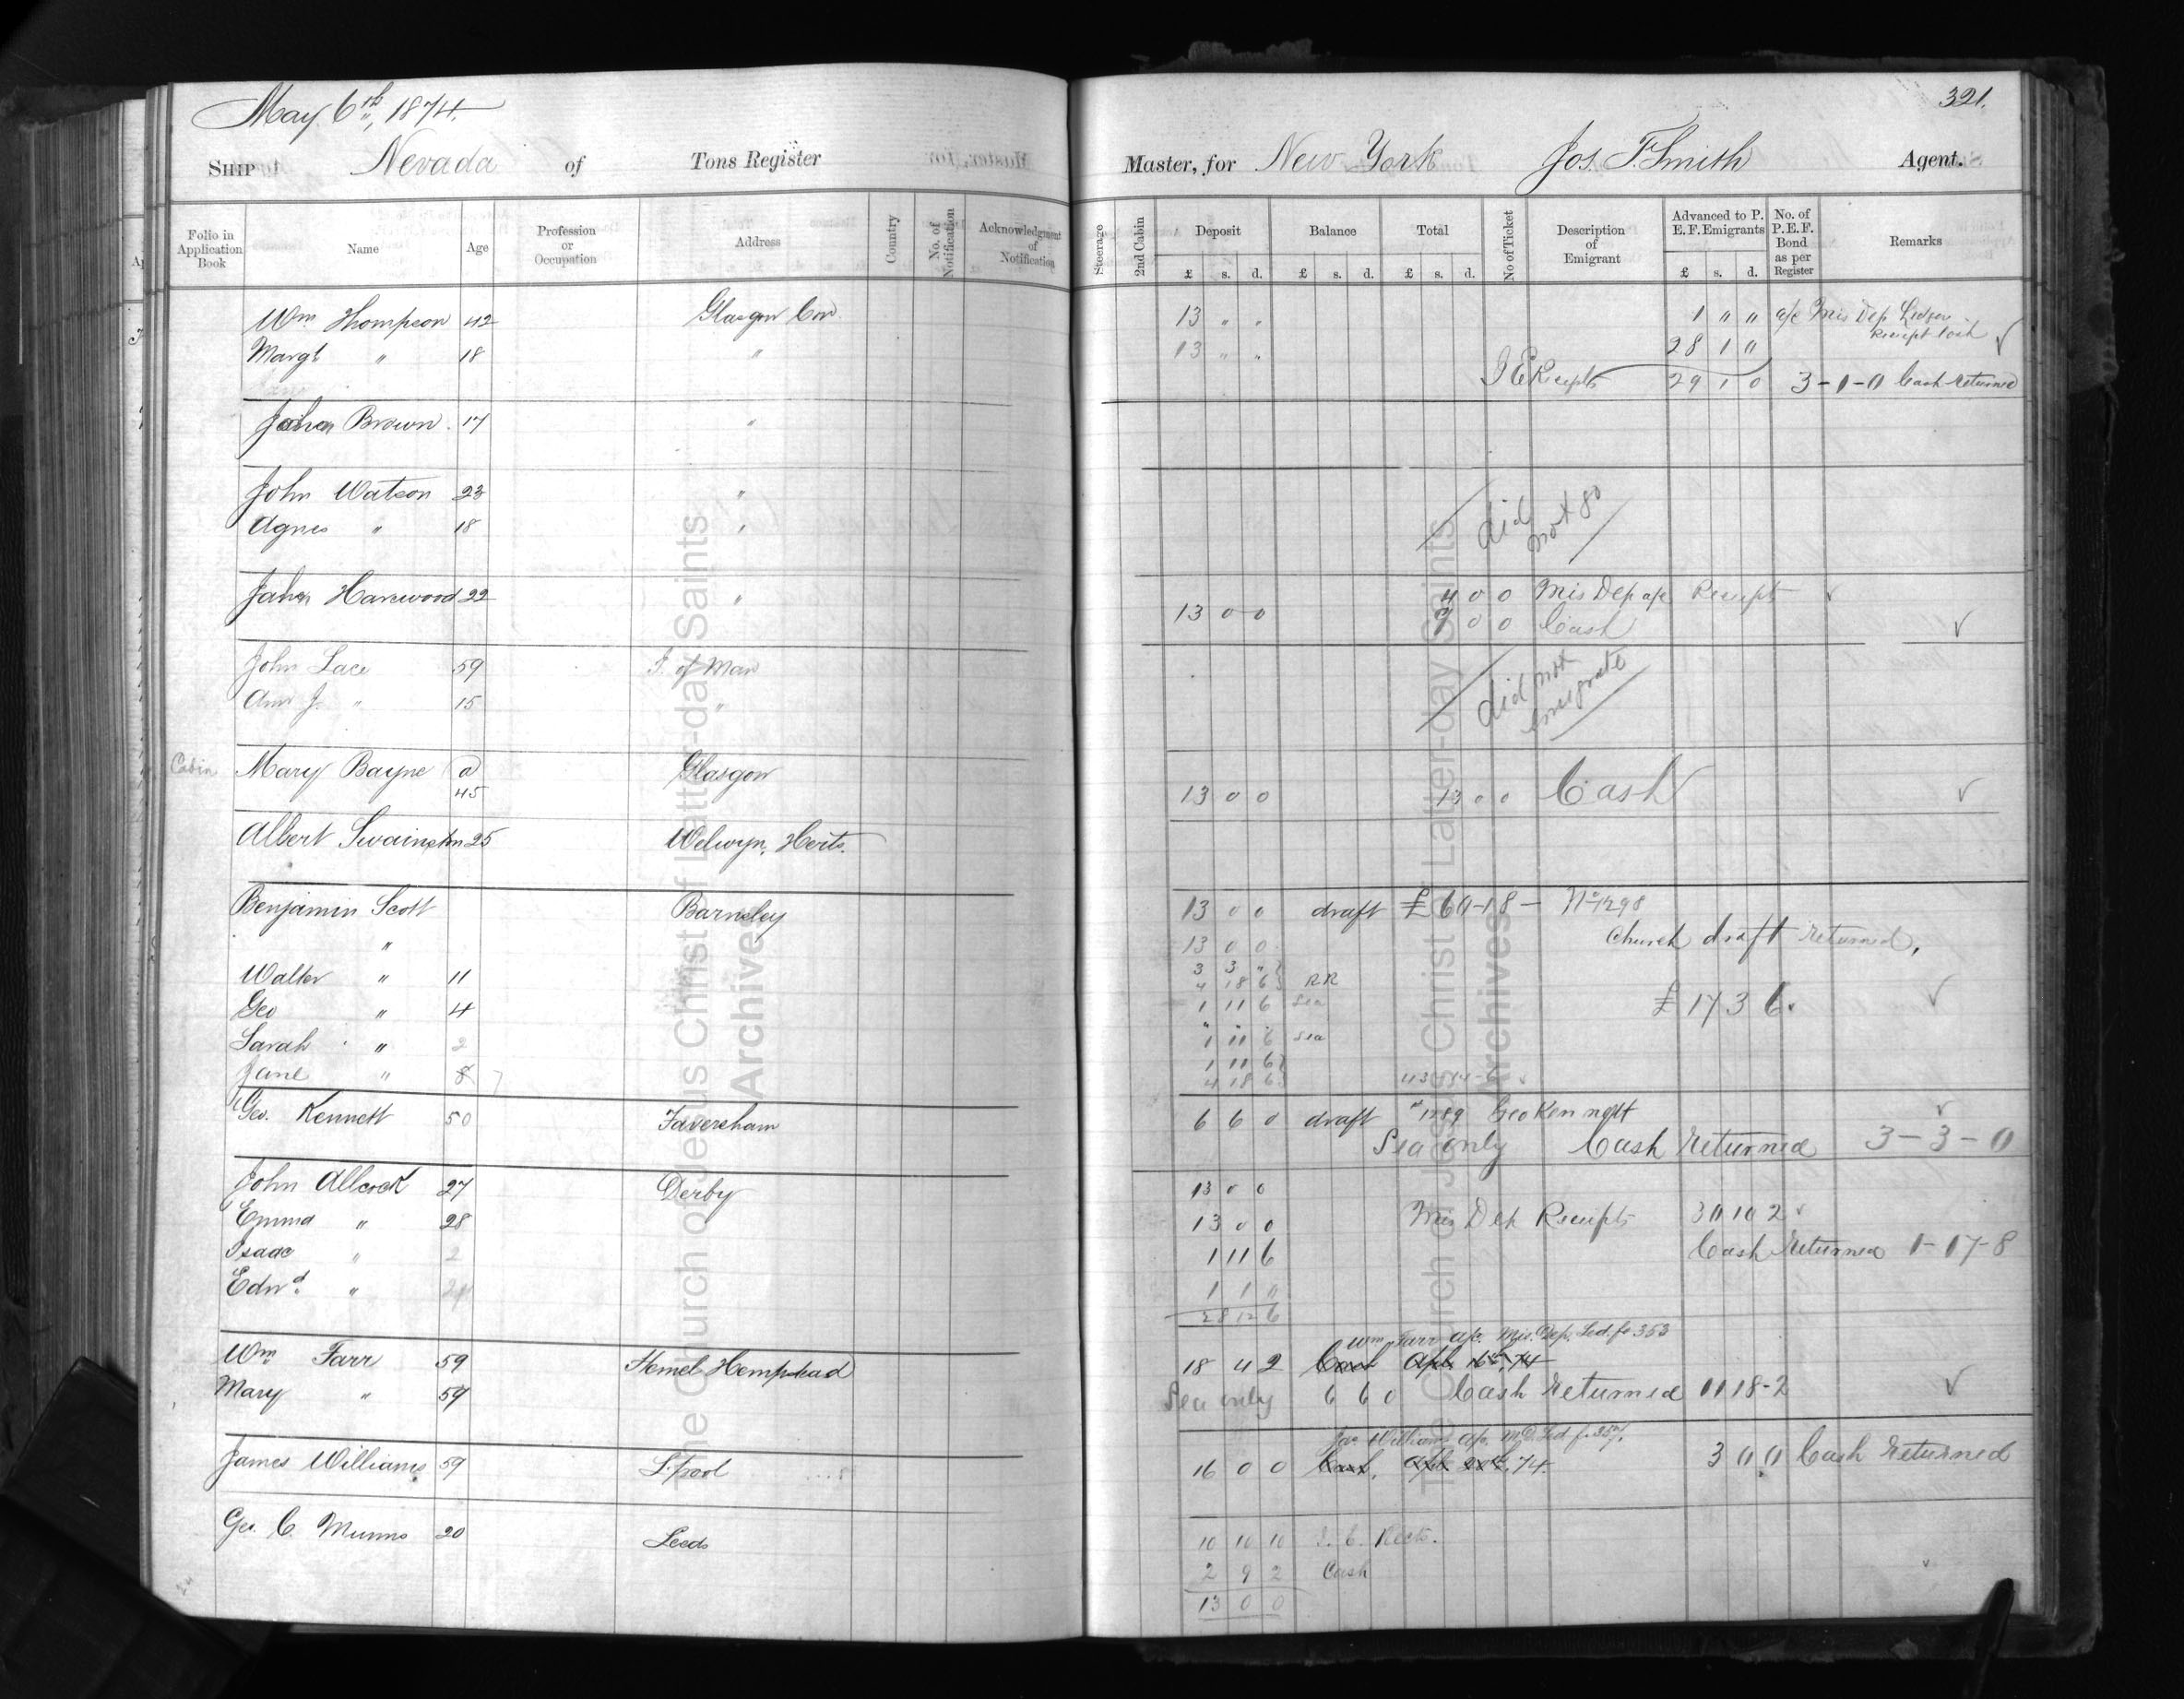 May 6th, 1874.
321.
Ship Nevada of Tons Register Master, for New York Jos. F. Smith Agent.
Folio in Application Book Name Age Profession or Occupation Address Country No. of Notification Acknowledgment of Notification Steerage 2nd Cabin Deposit Balance Total No of Ticket Description of Emigrant Advanced to P. E. F. Emigrants No. of P. E. F. Bond as per Register Remarks
£ s. d. £ s. d. £ s. d. £ s. d.
Wm Thompson 42 Glasgow Con 13 " " 1 " " a/c Mis Dep Ledger
Receipt Cash
Margt " 18 " 13 " " 28 1 0
I E Receipts 29 1 0 3-1-0 Cash returned
Brown 17 "
John Watson 23 " did
Agnes " 18 " not go
Harewood 22 " 4 0 0 Mis Dep a/c Receipt
13 0 0 9 0 0 Cash
John Lace 59 I. of Man did not
Ann J. " 15 " emigrate
Cabin Mary Bayne a Glasgow
45 13 0 0 13 0 0 Cash
Albert Swainston 25 Welwyn, Herts.
Benjamin Scott Barnsley 13 0 0 draft £60-18- No 1298
" 13 0 0 Church draft returned,
3 3 "
Walter " 11 4 18 6 RR
Geo " 4 1 11 6 Sea £17 3 6.
Sarah " 2 1 11 6 Sea
Jane " 8 7 1 11 6
4 18 6 43-14-6
Geo. Kennett 50 Faversham 6 6 0 draft 1289 Geo Kennett
Sea only Cash returned 3-3-0
John Allcock 27 Derby 13 0 0
Emma " 28 13 0 0 Mis Dep Receipts 30 10 2
Isaac " 2 1 11 6 Cash returned 1-17-8
Edwd. " 1 1 0
28 12 6
Wm Farr a/c. Mis. Dep. Led. fo 353
Wm Farr 59 Hemel Hempstead 18 4 2 Cash Apl. 16th, 74
Mary " 59 Sea only 6 6 0 Cash returned 11 18-2
Jas Williams a/c. M.D. Led f. 357.
James Williams 59 L.pool 16 0 0 Cash, Apl. 20th, 74. 3 0 0 Cash returned
Geo. C. Munns 20 Leeds 10 10 10 I. E. Rects.
2 9 2 Cash
13 0 0
The Church of Jesus Christ of Latter-day Saints
Archives
The Church of Jesus Christ of Latter-day Saints
Archives